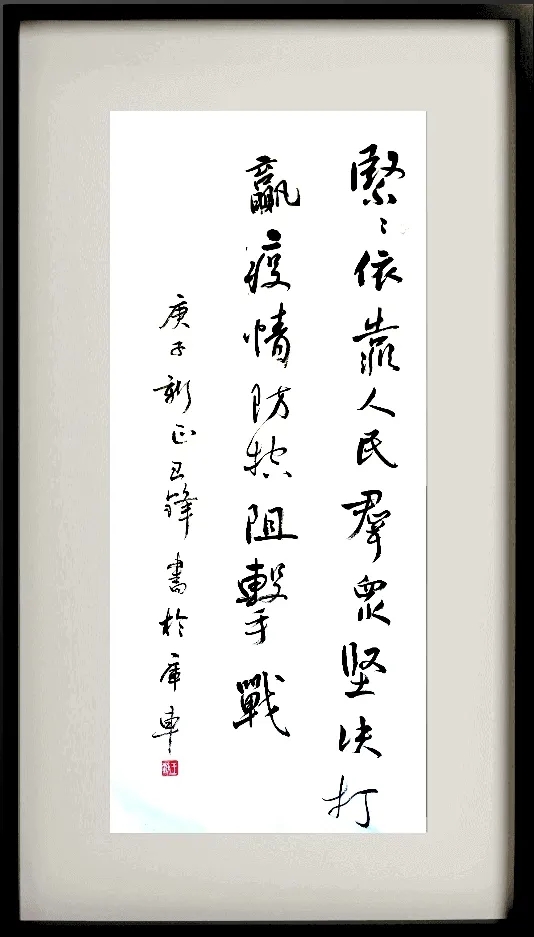 緊〻依靠人民羣眾堅决打
贏疫情防控阻擊戰
庚子新正卫鋒書於库車